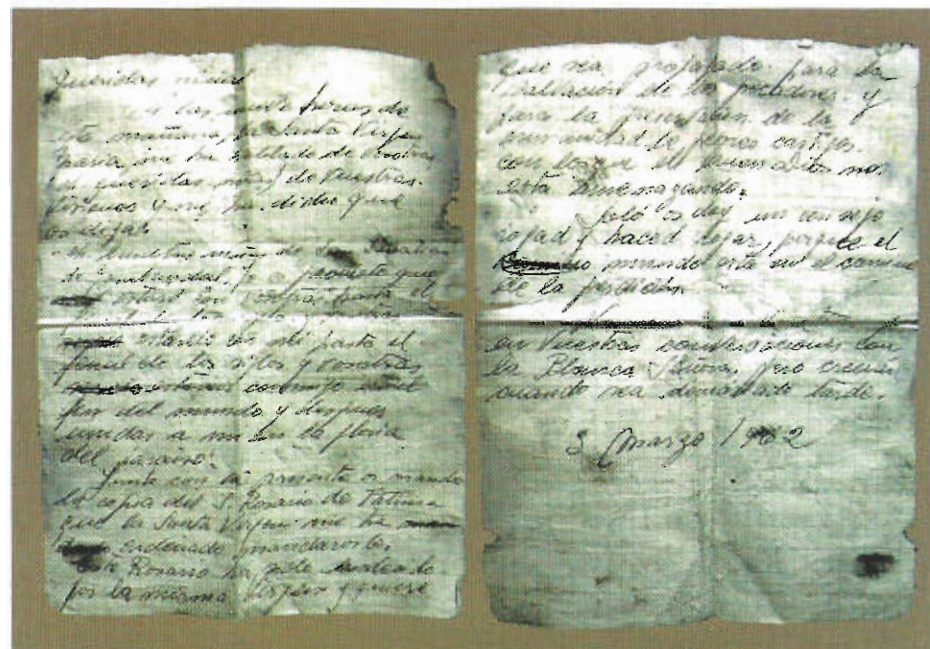 Queridas niñas:
a las nueve horas de
esta mañana, la Santa Virgen
María me ha hablado de vosotras
queridas niñas de vuestras
y me ha dicho que
os diga:
niñas de San Sebastián
de Garabandal, yo prometo que
estaré con vosotras hasta el
estaréis con mí hasta el
final de los siglos y vosotras
estaréis conmigo hasta el
fin del mundo y después
unidas a mí en la gloria
del paraíso".
Junto con la presente os mando
la copia del S. Rosario de Fátima
que la Santa Virgen me ha
ordenado mandaros la.
Este Rosario ha sido
por la misma Virgen y quiere
que sea propagado para la
salvación de los pecadores y
para la de la
humanidad de peores castigos
con los que el buen Dios nos
está amenazando.
Solo os doy un consejo
rezad y haced rezar, porque el
mundo está en el
de la perdición.
en vuestras conversaciones con
la Blanca Señora, pero creerán
cuando sea demasiado tarde.
3 Marzo 1962